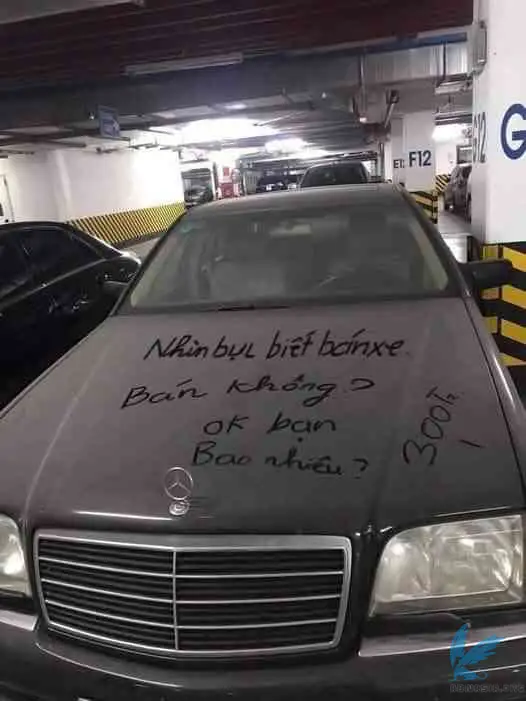 F12
G
Nhìn bụi biết bán xe.
Bán không?
OK bạn
Bao nhiêu?
300Tr